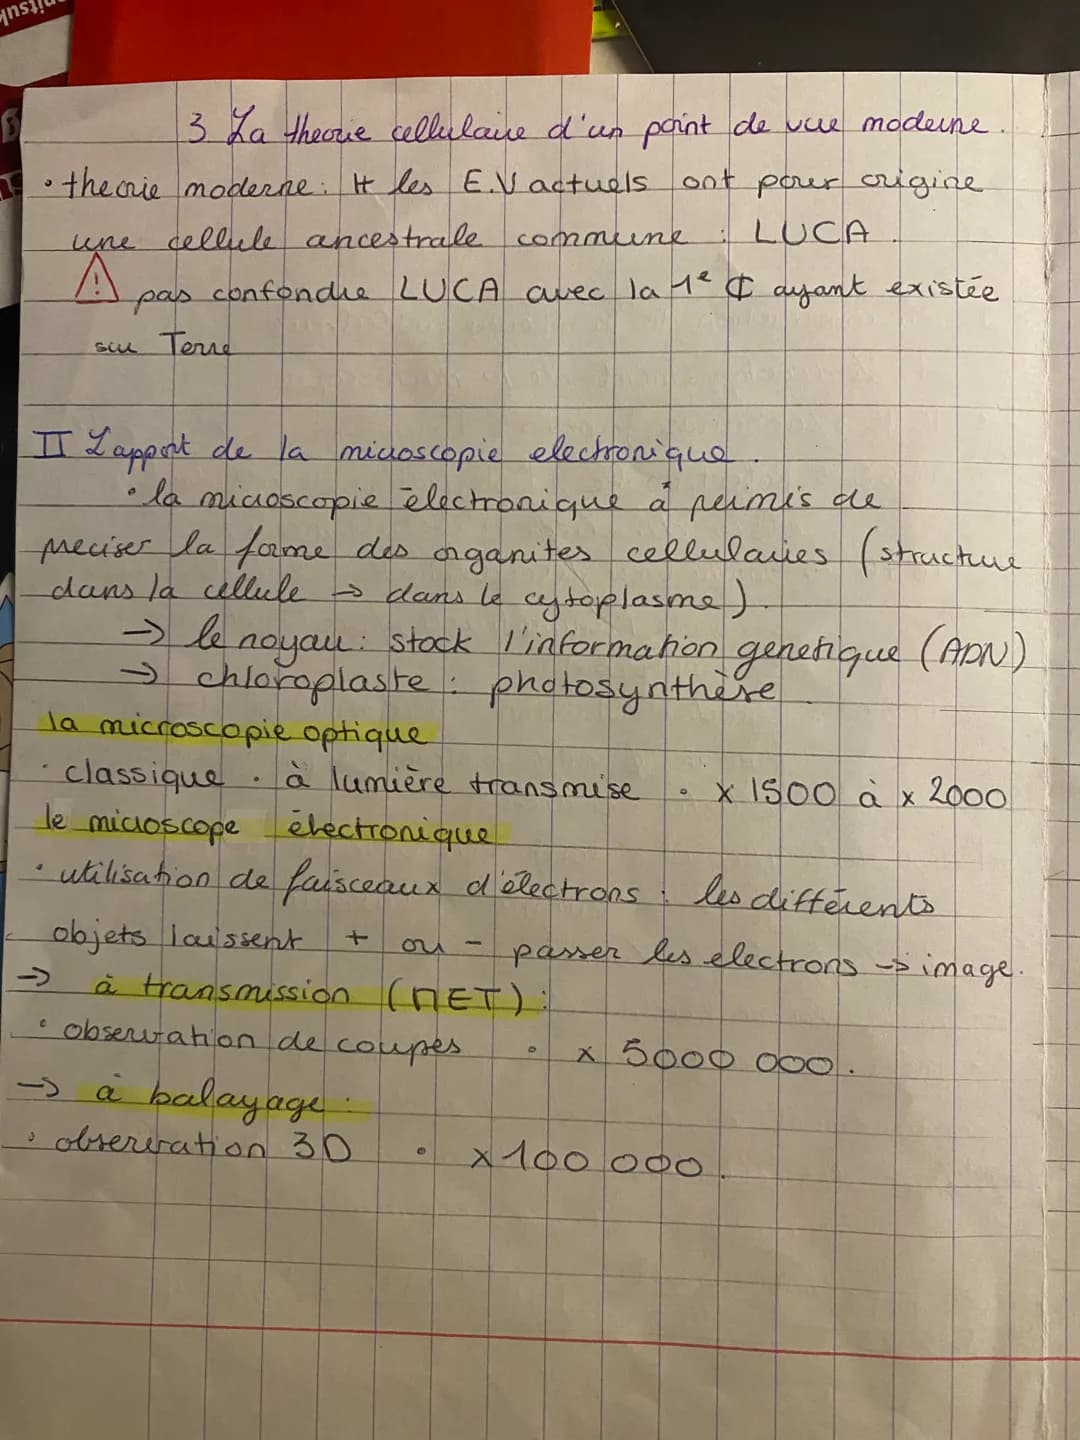 3 La theorie cellulaire d'un point de vue moderne.
• theorie moderne : tt les E.V actuels ont pour origine
une cellule ancestrale commune : LUCA.
! pas confondre LUCA avec la 1e ₵ ayant existée
sur Terre
II L'apport de la microscopie electronique.
• la microscopie électronique à permis de
preciser la forme des organites cellulaires (structure
dans la cellule → dans le cytoplasme).
→ le noyau : stock l'information genetique (ADN)
→ chloroplaste : photosynthèse
la microscopie optique
• classique • à lumière transmise • x 1500 à x 2000
le microscope électronique
• utilisation de faisceaux d'électrons : les différents
objets laissent + ou - passer les electrons → image.
→ à transmission (MET) :
• observation de coupes • x 5000 000.
→ à balayage :
• observation 3D • x 100 000.